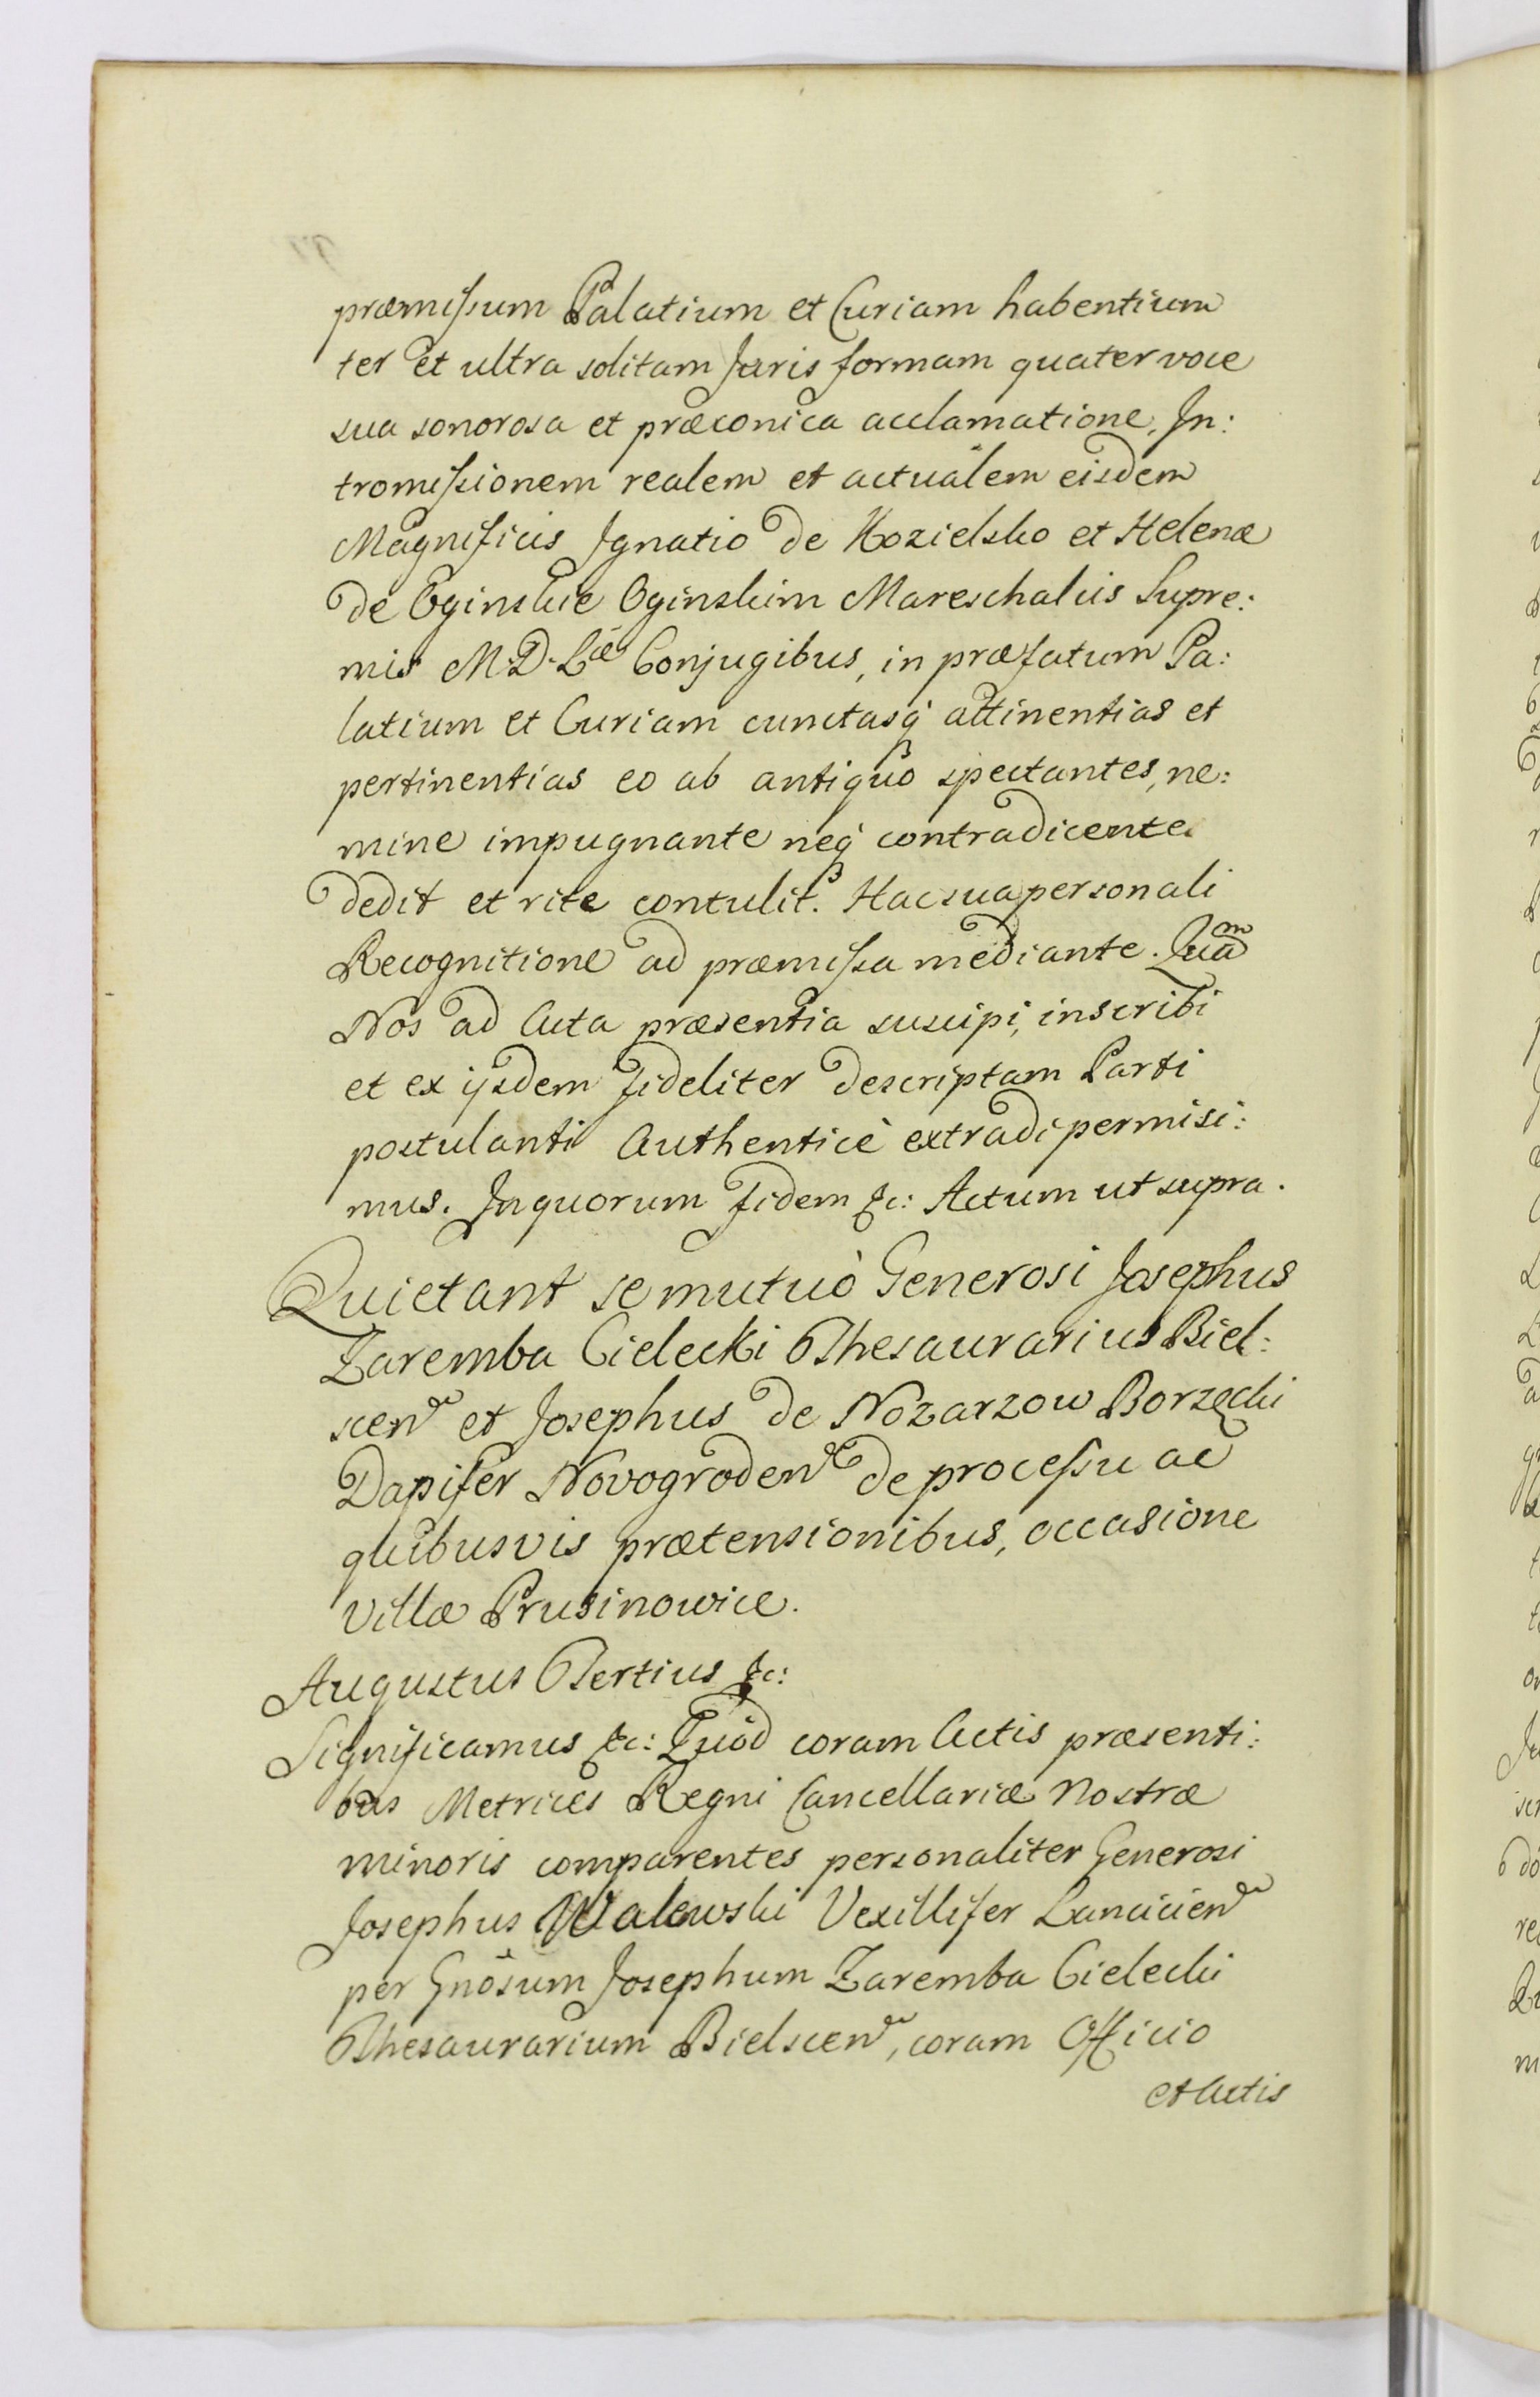 præmissum Palatium et Curiam habentium
ter et ultra solitam Juris formam quater voce
sua sonorosa et præconica acclamatione, In:
tromissionem realem et actualem eisdem
Magnificis Ignatio de Kozielsko et Helenæ
de Oginskie Oginskim Mareschalcis Supre:
mis M. D. Læ Conjugibus, in præfatum Pa:
latium et Curiam cunctasq́ attinentias et
pertinentias eo ab antiquo spectantes, ne:
mine impugnante neq́ contradicente
dedit et rite contulit. Hac sua personali
Recognitione ad præmissa mediante. Quam
Nos ad Acta præsentia suscipi, inscribi
et ex ijsdem fideliter descriptam Parti
postulanti Authenticè extradi permisi:
mus. In quorum fidem &c: Actum ut supra.
Quietant se mutuò Generosi Josephus
Zaremba Cielecki Thesaurarius Biel:
scen et Josephus de Nozarzow Borzęcki
Dapifer Novogroden de processu ac
quibusvis prætensionibus, occasione
Villæ Prusinowice.
Augustus Tertius &c:
Significamus &c: Quod coram Actis præsenti:
bus Metrices Regni Cancellariæ Nostræ
minoris comparentes personaliter Generosi
Josephus Walewski Vexillifer Lancicien
per Gnosum Josephum Zaremba Cielecki
Thesaurarium Bielscen, coram Officio
et Actis